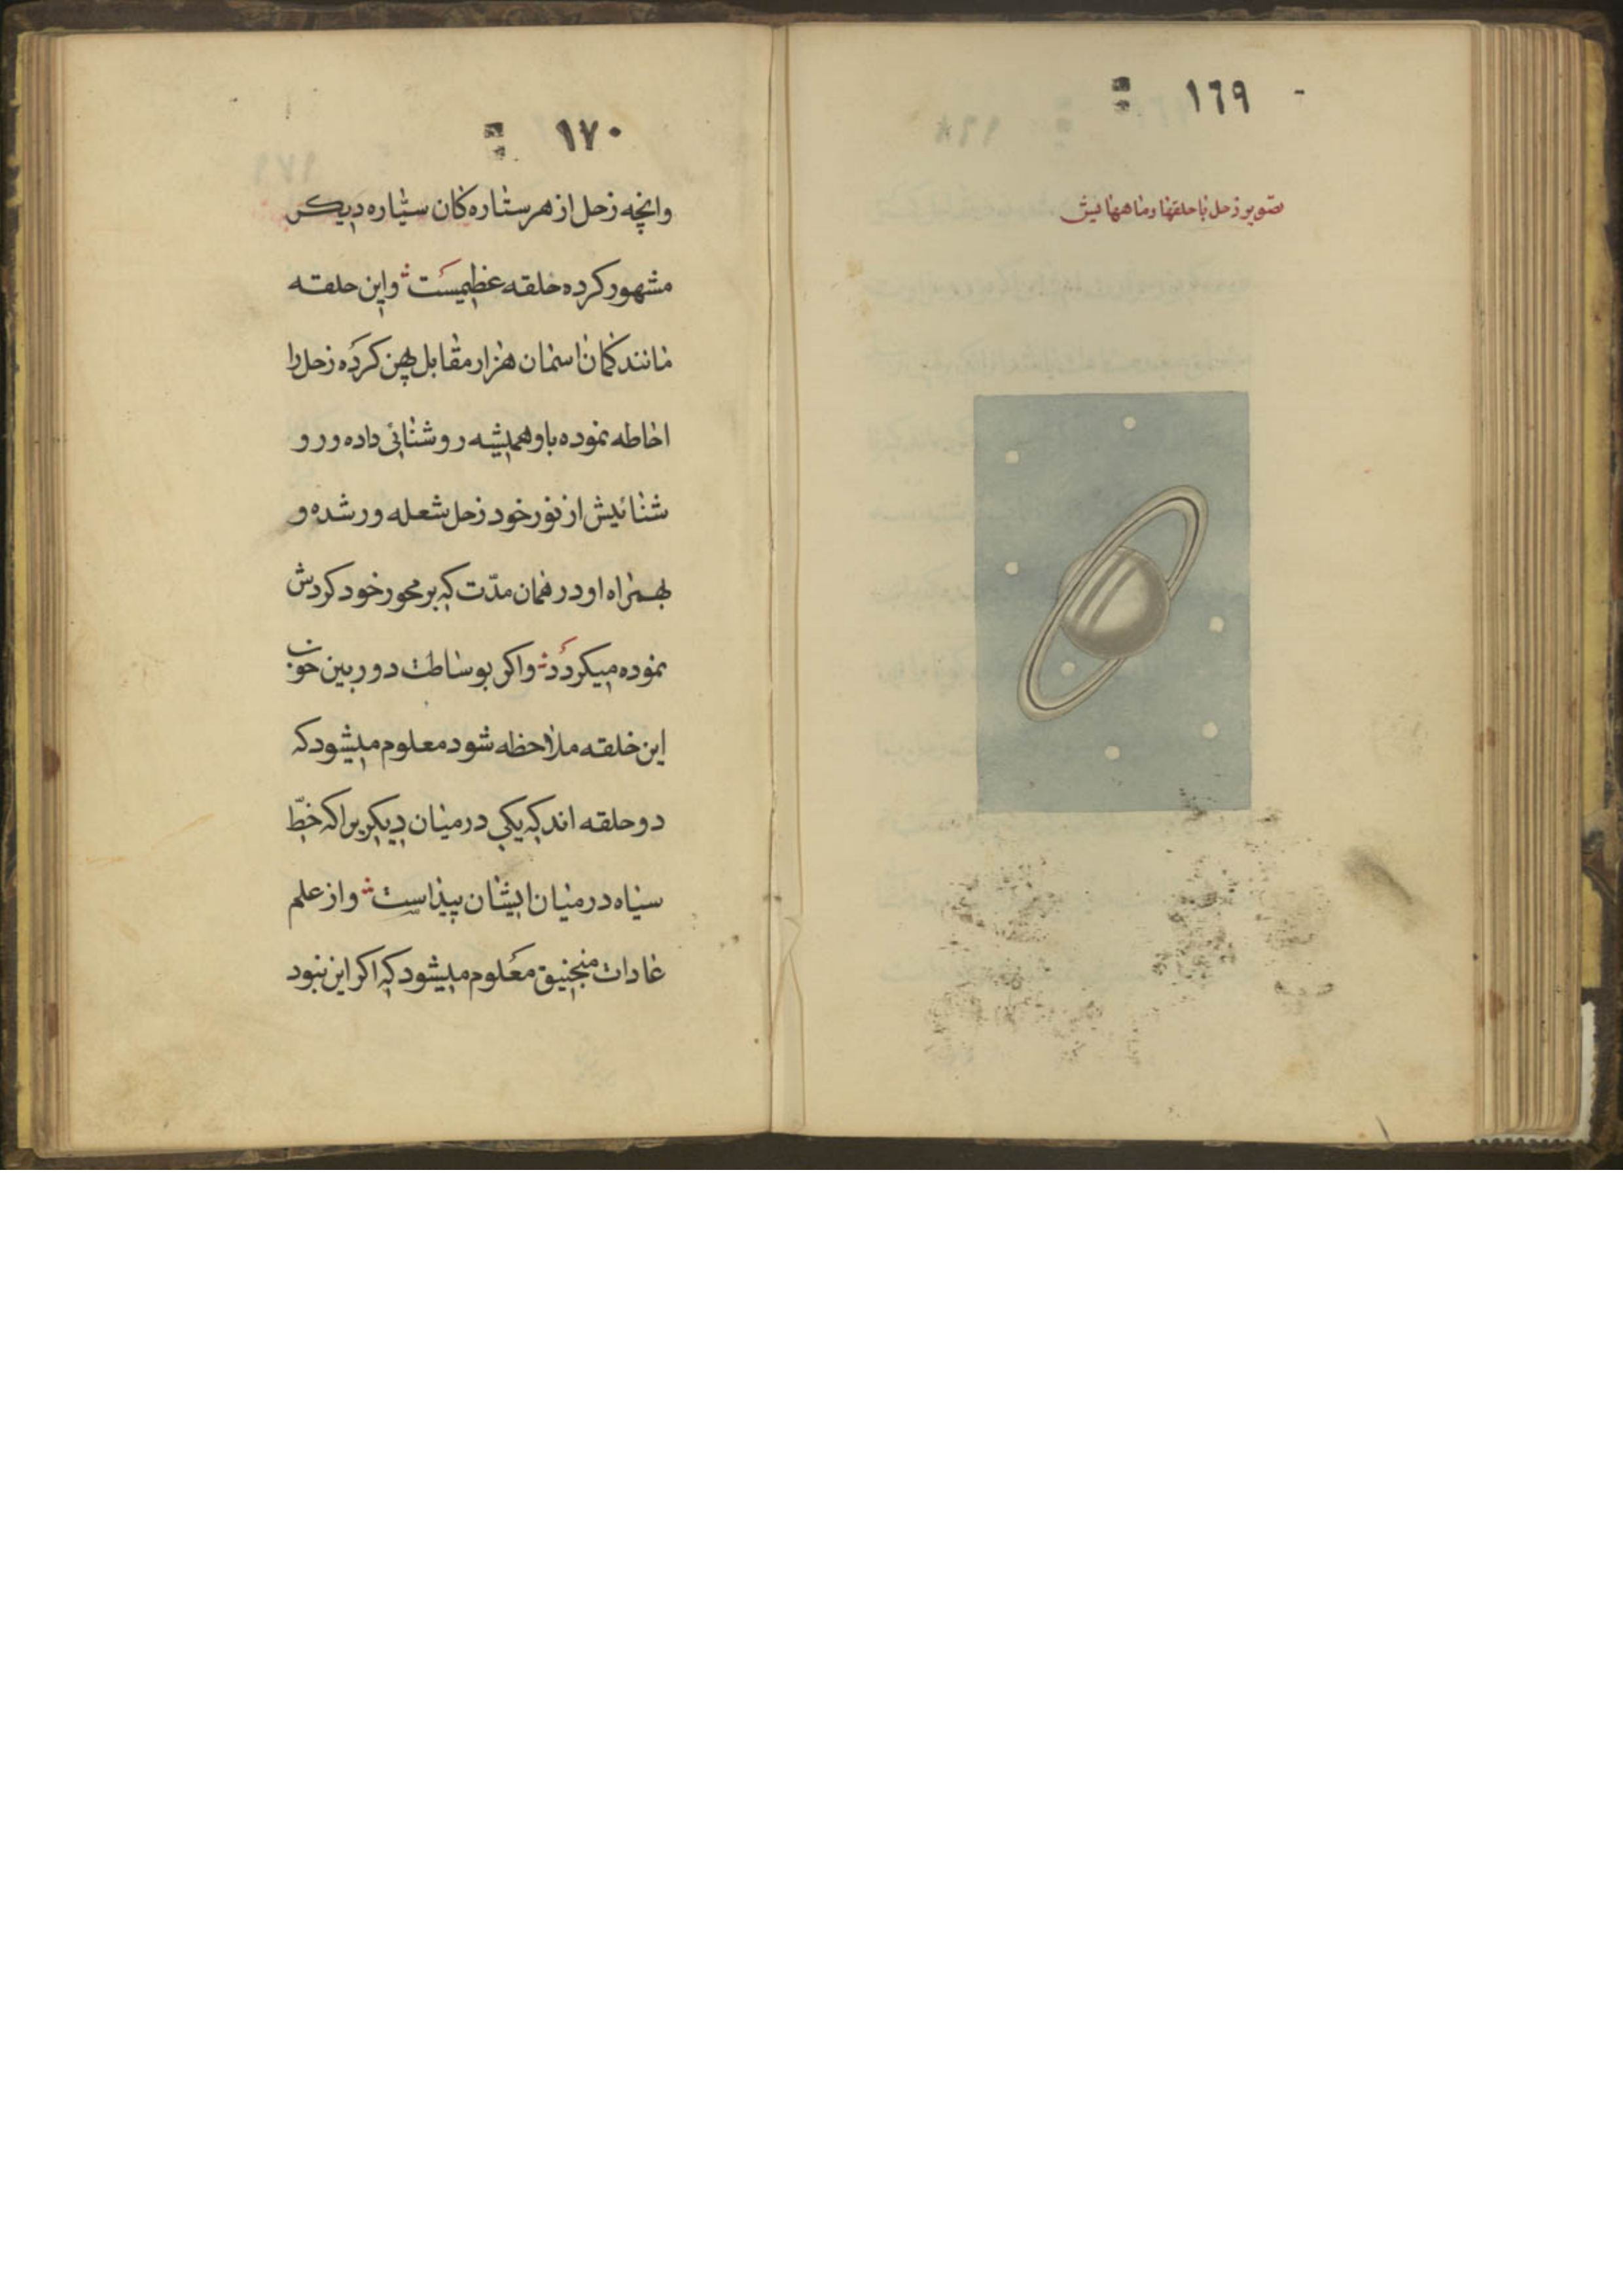 ١٦٩
تصویر زحل با حلقها و ماههایش
١٧٠
وانچه زحل از هر ستاره کان سیّاره دیکر
مشهور کرده حلقه عظیمیست واین حلقه
مانند کمان اسمان هزار مقابل پهن کرده زحل را
احاطه نموده باو همیشه روشنائی داده ورو
شنائیش از نور خود زحل شعله ور شده و
بهمراه او در همان مدّت که بر محور خود کردش
نموده میکردد واکر بوساطت دوربین خوب
این حلقه ملاحظه شود معلوم میشود که
دو حلقه اند که یکی در میان دیکر یراکه خطّ
سیاه در میان ایشان پیداست واز علم
عادات منجنیق معلوم میشود که اکر این نبود